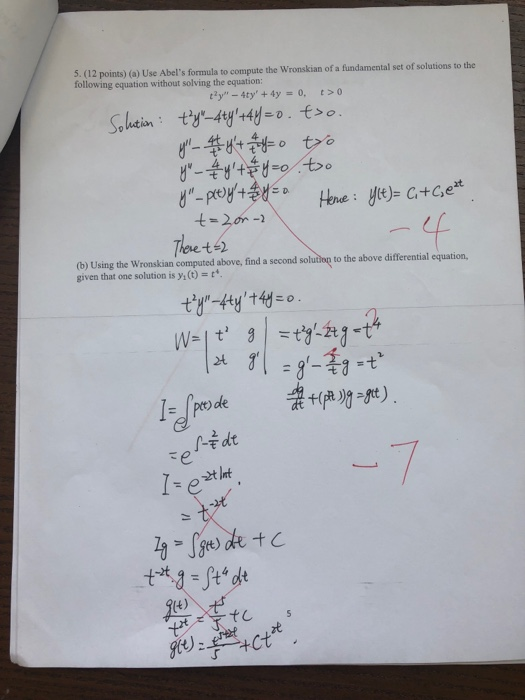 5. (12 points) (a) Use Abel's formula to compute the Wronskian of a fundamental set of solutions to the
following equation without solving the equation:
t²y'' − 4ty' + 4y = 0, t > 0
Solution: t²y''-4ty'+4y=0. t>0.
y''-4t/t² y'+4/t² y=0 t>0
y''-4/t y'+4/t² y=0. t>0
y''-p(t)y'+4/t² y=0
t=2 or -2
Hence: y(t)= C₁+C₂e^2t
-4
There t=2
(b) Using the Wronskian computed above, find a second solution to the above differential equation,
given that one solution is y₁(t) = t⁴.
t²y''-4ty'+4y=0.
W= | t² g | = t²g'-2tg=t⁴
| 2t g' | = g'-2/t g=t²
I=e^∫p(t)dt
dg/dt +(p(t))g=g(t).
=e^∫-2/t dt
-7
I=e^-2t lnt.
=t^-2t
Ig = ∫g(t) dt + C
t^-2t.g = ∫t⁴ dt
g(t)/t^2t = t⁵/5 +C
5
g(t)= /5 +Ct^2t.